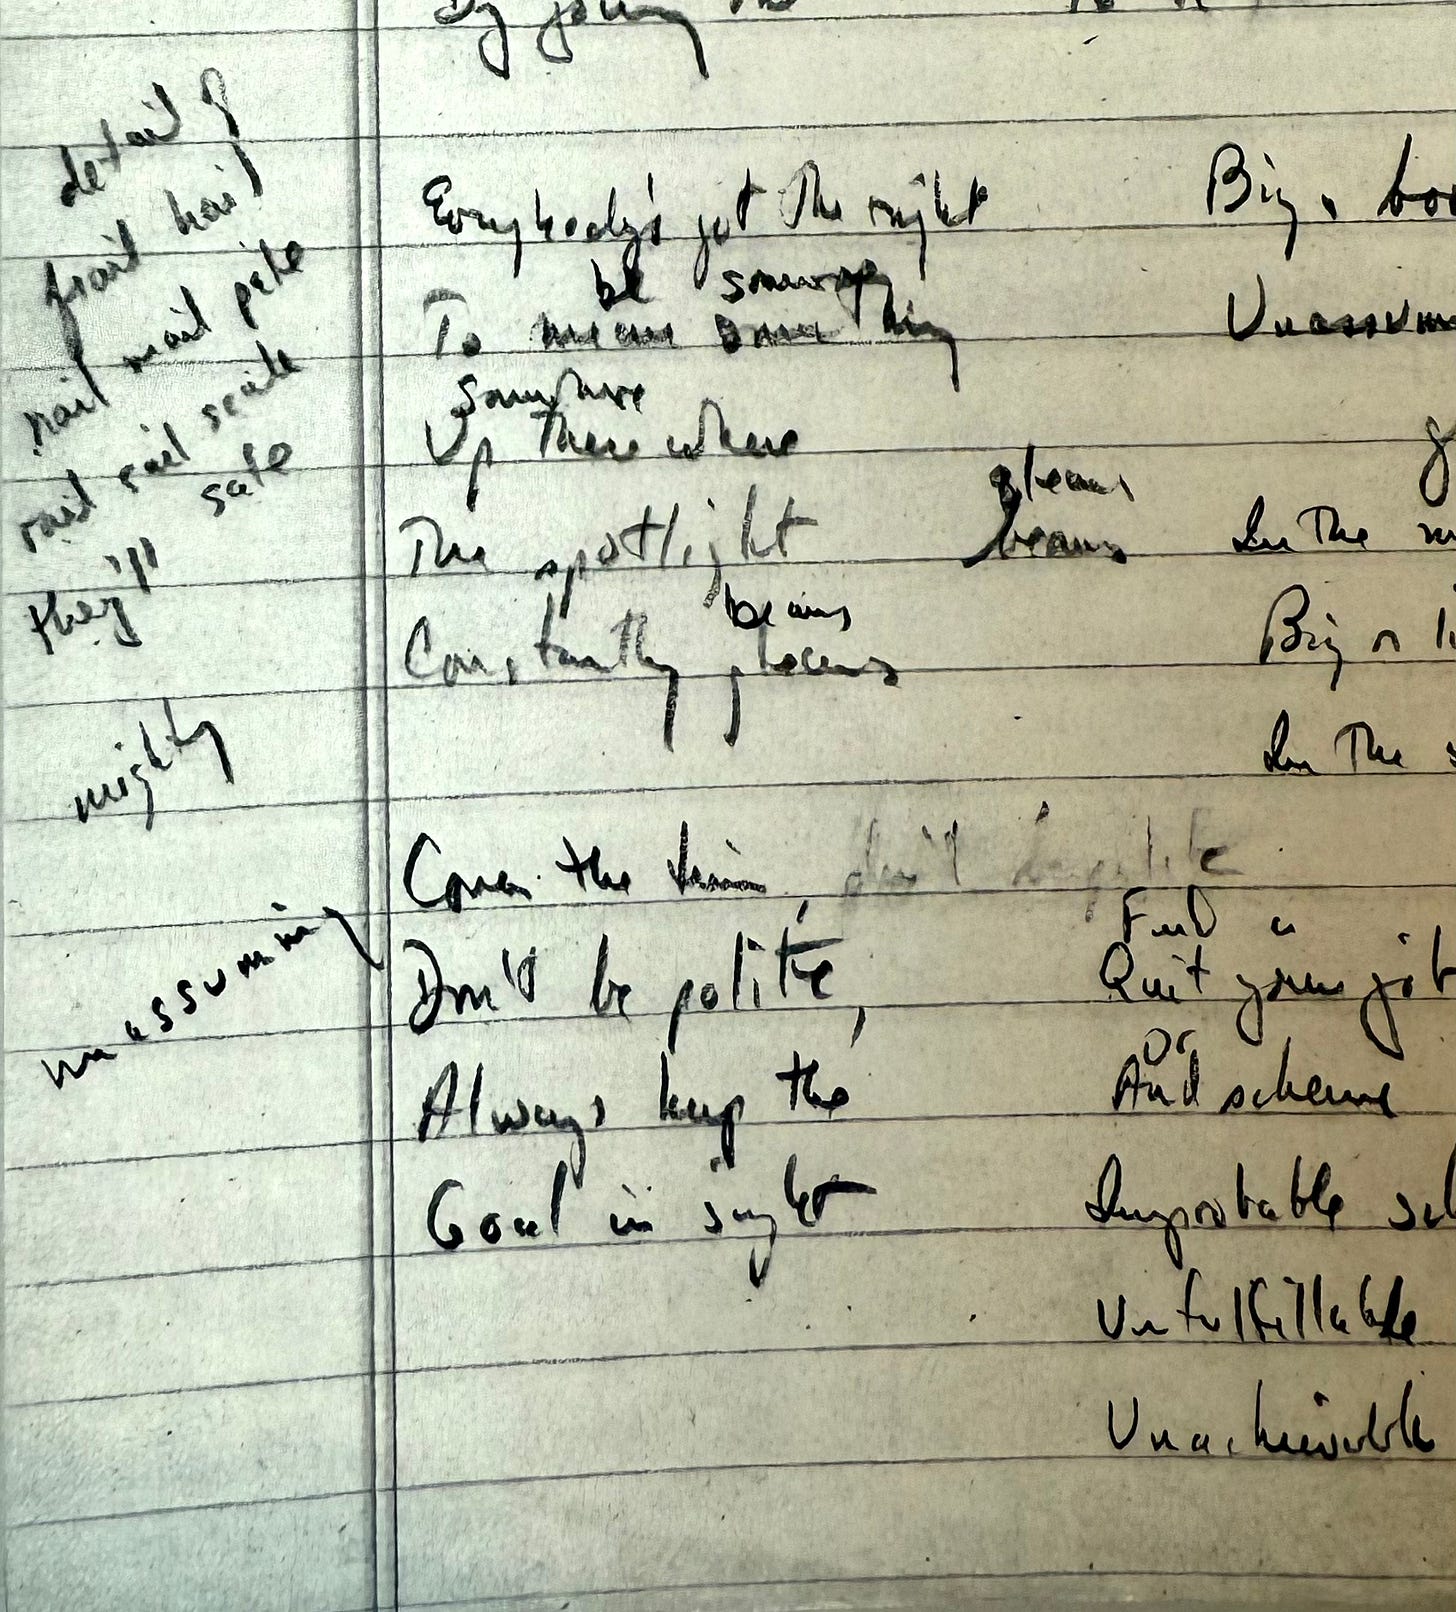 detail
frail hail
nail mail pale
rail sail scale
sale
they'll
mighty
unassuming
By
Everybody's got the right
be someone
To mean something
Somewhere
Up There where
The spotlight
gleams
beams
beams
Constantly gleams
Cover the
don't
Don't be polite,
Always keep the
Goal in sight
Big
In The
Big or
In The
Find a
Quit your job
Or
And scheme
Improbable
Unfulfillable
Unachievable